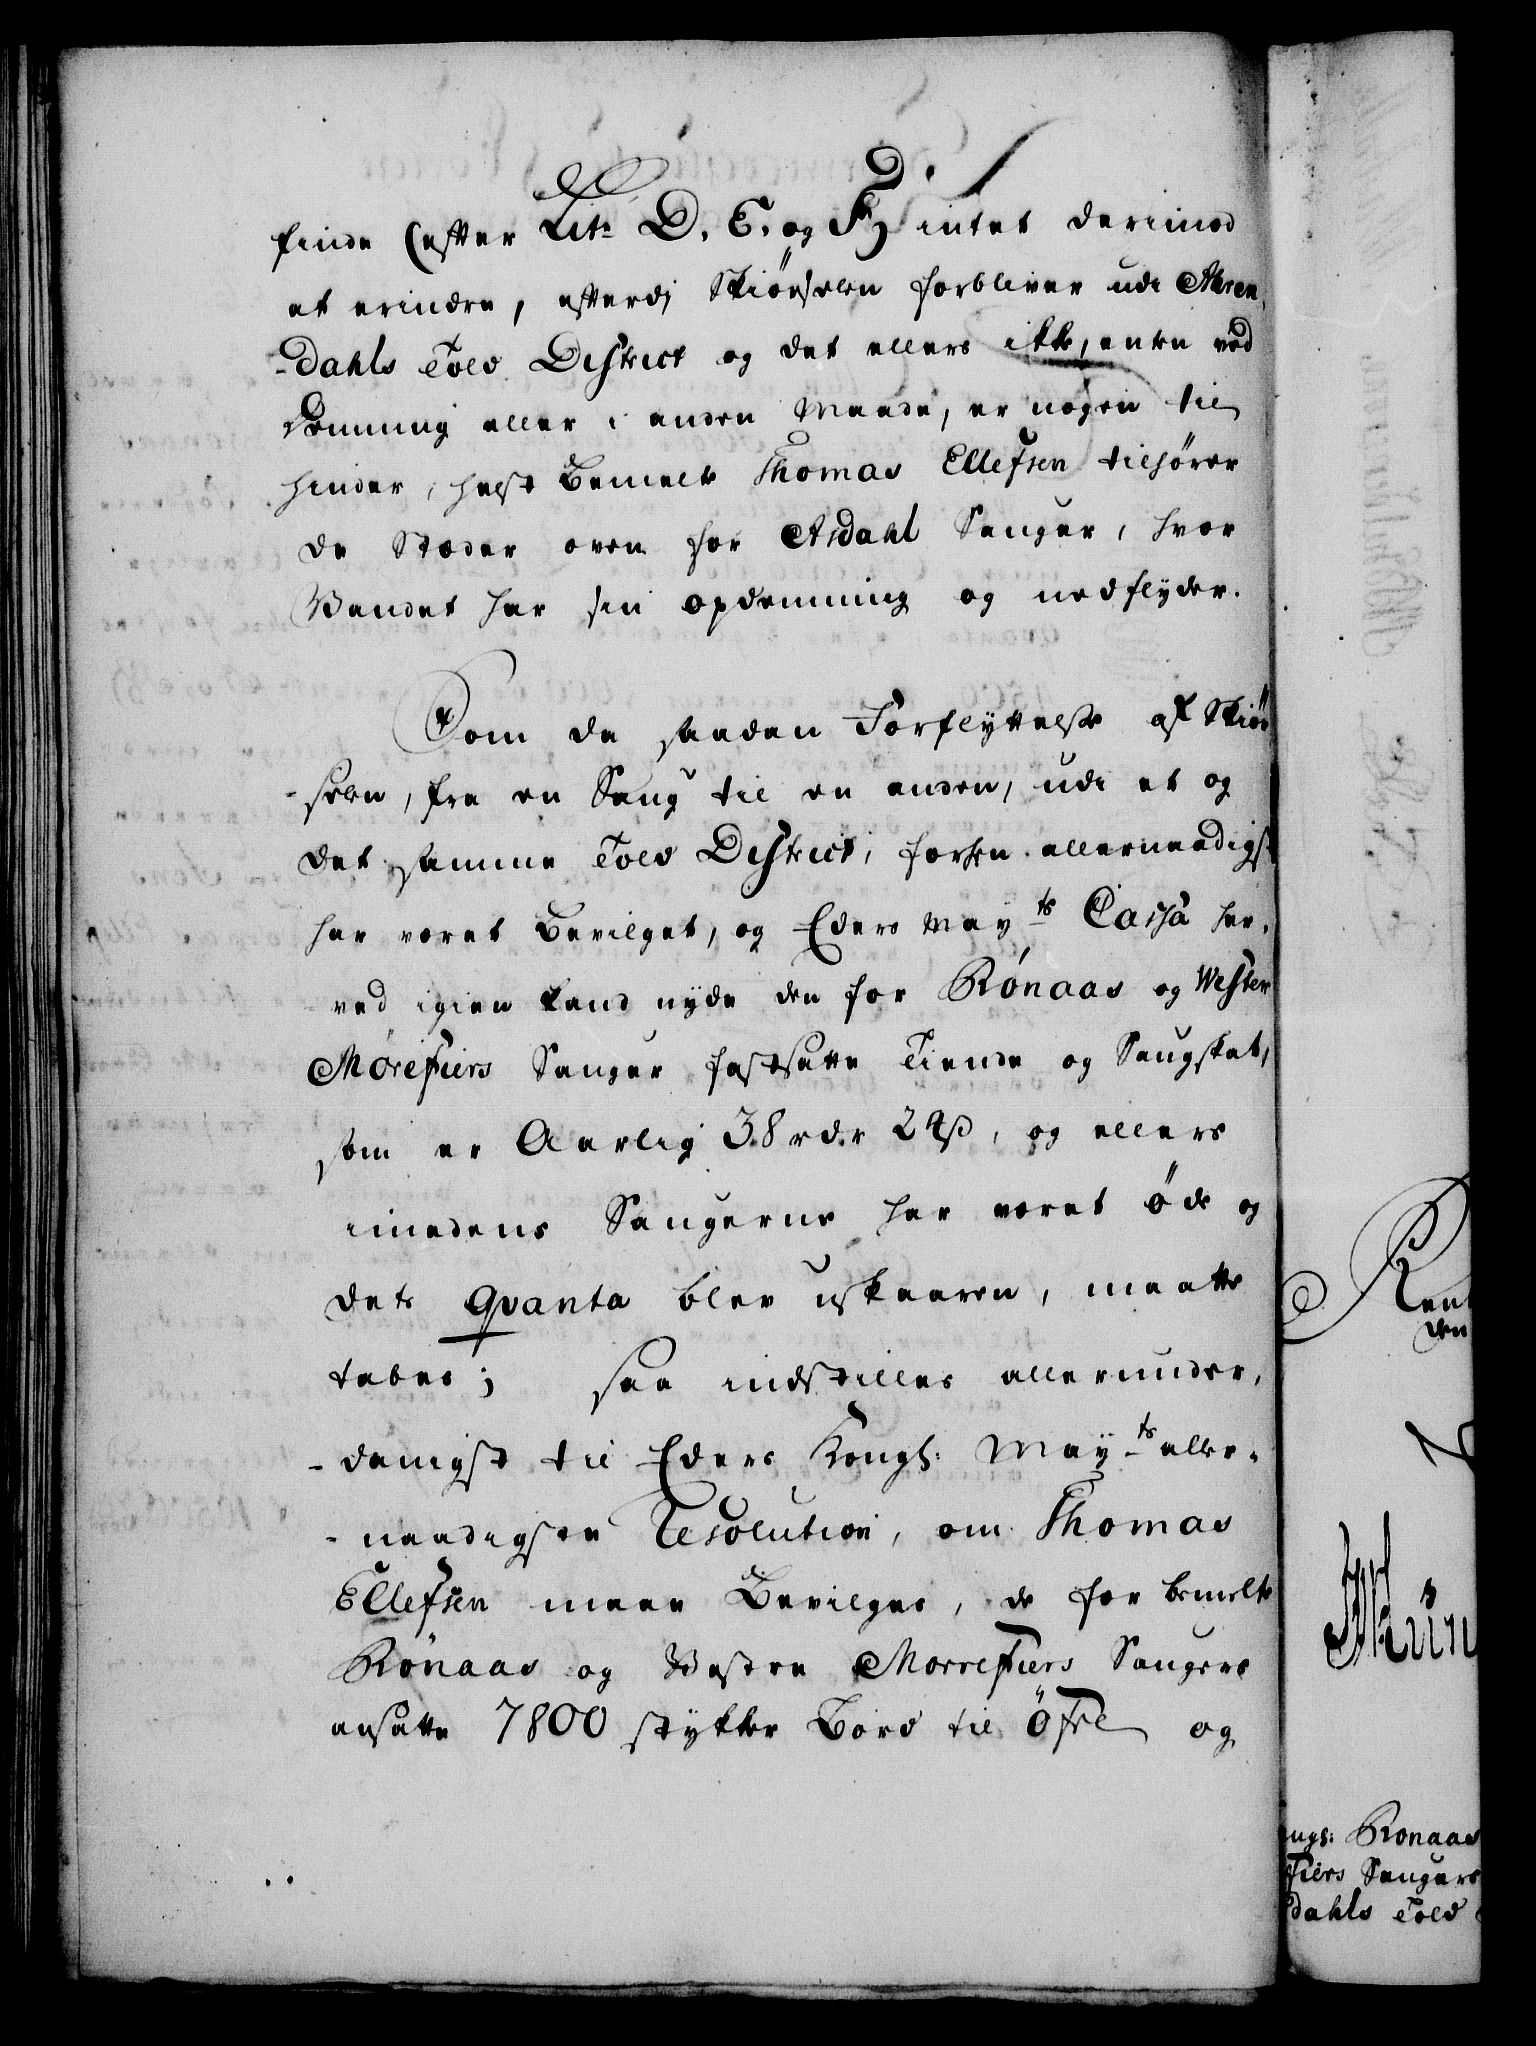 finde (efter Lit: D. E. og F) intet derimod
at erindre, efterdj Skiørselen forbliver udi Ahren-
-dahls Told District og det ellers ikke, enten ved
Demning eller i anden Maade, er nogen til
hinder, helst bemelte Thomas Ellefsen tilhører
de Stæder oven for Asdahl Sauger, hvor
Vandet har sin opdemning og nedflyder.
Som da saaden Forflyttelse af Skiør
-selen, fra en Saug til en anden, udi et og
det samme Told District, forhen allernaadigst
har været bevilget, og Eders May:ts Cassa her-
ved igien kand nyde den for Rónaas og Wester
Mórefiers Sauger fastsatte Tiende og Saugskat,
som er Aarlig 38 rdr 24 ß, og ellers
imedens Saugerne har været øde og
dets qvanta blev uskaaren, maatte
tabes; saa indstilles allerunder-
-danigst til Eders Kongl: May:ts aller-
-naadigsten Resolution, om Thomas
Ellefsen maae bevilges, de for bemelte
Rónaas og Vestre Morrefiers Saugers
ansatte 7800 stykker Bord til Øfre og
Rent
den
ngs: Rónaas
fiers Saugers
dahls Told